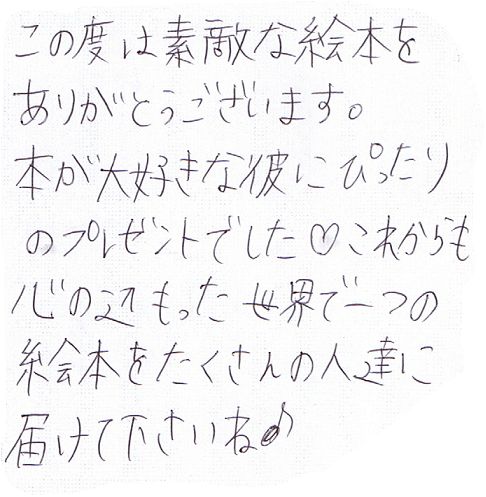 この度は素敵な絵本を
ありがとうございます。
本が大好きな彼にぴったり
のプレゼントでした♡これからも
心の込もった世界で一つの
絵本をたくさんの人達に
届けて下さいね♪